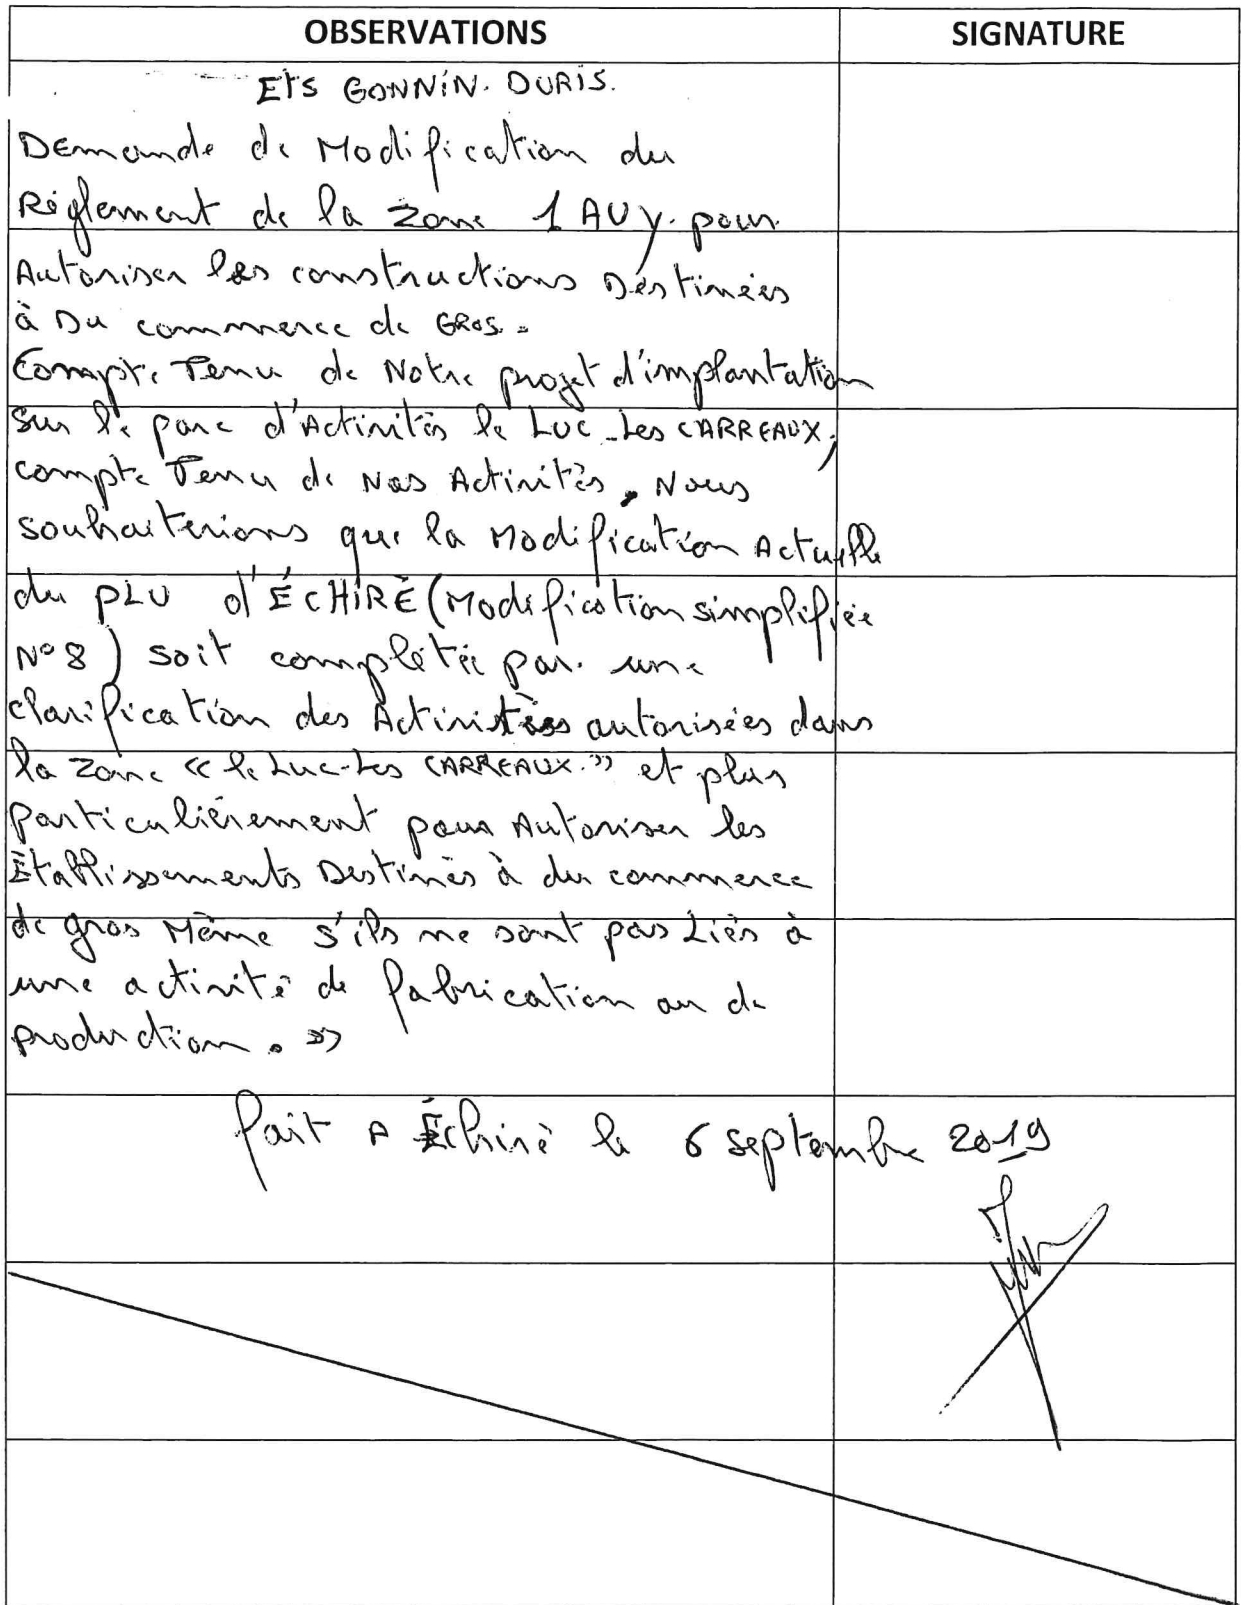 OBSERVATIONS
SIGNATURE
Ets GONNiN. DURiS.
Demande de Modification du
Réglement de la zone 1 AUy. pour
Autoriser les constructions Déstinées
à Du commerce de GROS.
Compte Tenu de Notre projet d'implantation
sur le parc d'Activités le LUC-Les CARREAUX,
compte Tenu de Nos Activités, Nous
souhaiterions que la Modification Actuelle
du PLU d'ÉCHIRÉ (Modification simplifiée
N°8) soit complétée par une
clarification des Activitées autorisées dans
la zone « le Luc-Les CARREAUX.» et plus
particulièrement pour Autoriser les
Établissements Destinés à du commerce
de gros Même s'ils ne sont pas Liés à
une activité de fabrication ou de
production. »
fait A Échiré le 6 septembre 2019